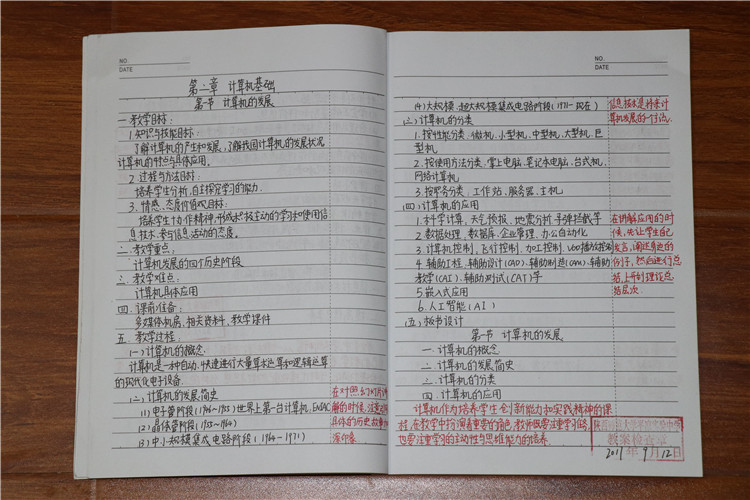 NO.
DATE
第二章 计算机基础
第一节 计算机的发展
一.教学目标:
1.知识与技能目标:
了解计算机的产生和发展,了解我国计算机的发展状况
计算机的特点与具体应用。
2.过程与方法目标:
培养学生分析、自主探究学习的能力。
3.情感、态度价值观目标:
培养学生协作精神,形成积极主动的学习和使用信
息技术、参与信息活动的态度。
二.教学重点:
计算机发展的四个历史阶段
三.教学难点:
计算机具体应用
四.课前准备:
多媒体机房、相关资料、教学课件
五.教学过程:
(一)计算机的概念.
计算机是一种自动、快速进行大量算术运算和逻辑运算
的现代化电子设备.
(二)计算机的发展简史
(1)电子管阶段(1946~1955)世界上第一台计算机,ENIAC
(2)晶体管阶段(1955~1964)
(3)中小规模集成电路阶段(1964~1971)
在对照幻灯片讲
解的时候,注意对
具体的历史故事
深印象
NO.
DATE
(4)大规模、超大规模集成电路阶段(1971~现在)
(三)计算机的分类
1.按性能分类:微机,小型机,中型机,大型机,巨
型机
2.按使用方法分类:掌上电脑,笔记本电脑,台式机,
网络计算机
3.按服务分类:工作站,服务器,主机
(四)计算机的应用
1.科学计算,天气预报,地震分析,导弹拦截等
2.数据处理,数据库,企业管理,办公自动化
3.计算机控制,飞行控制,加工控制,VOD播放控制
4.辅助工程,辅助设计(CAD),辅助制造(CAM),辅助
教学(CAI),辅助测试(CAT)等
5.嵌入式应用
6.人工智能(AI)
(五)板书设计
第一节 计算机的发展
一.计算机的概念
二.计算机的发展简史
三.计算机的分类
四.计算机的应用
信息技术是将来计
算机发展的一个方向.
在讲解应用的时
候,先让学生自己
发言,阐述身边的
例子,然后进行总
结上升到理论总
结层次.
计算机作为培养学生创新能力和实践精神的课
程,在教学中扮演着重要的角色,教师既要注重学习成绩,
也要注重学习的主动性与思维能力的培养.
教案检查章
2017年9月12日